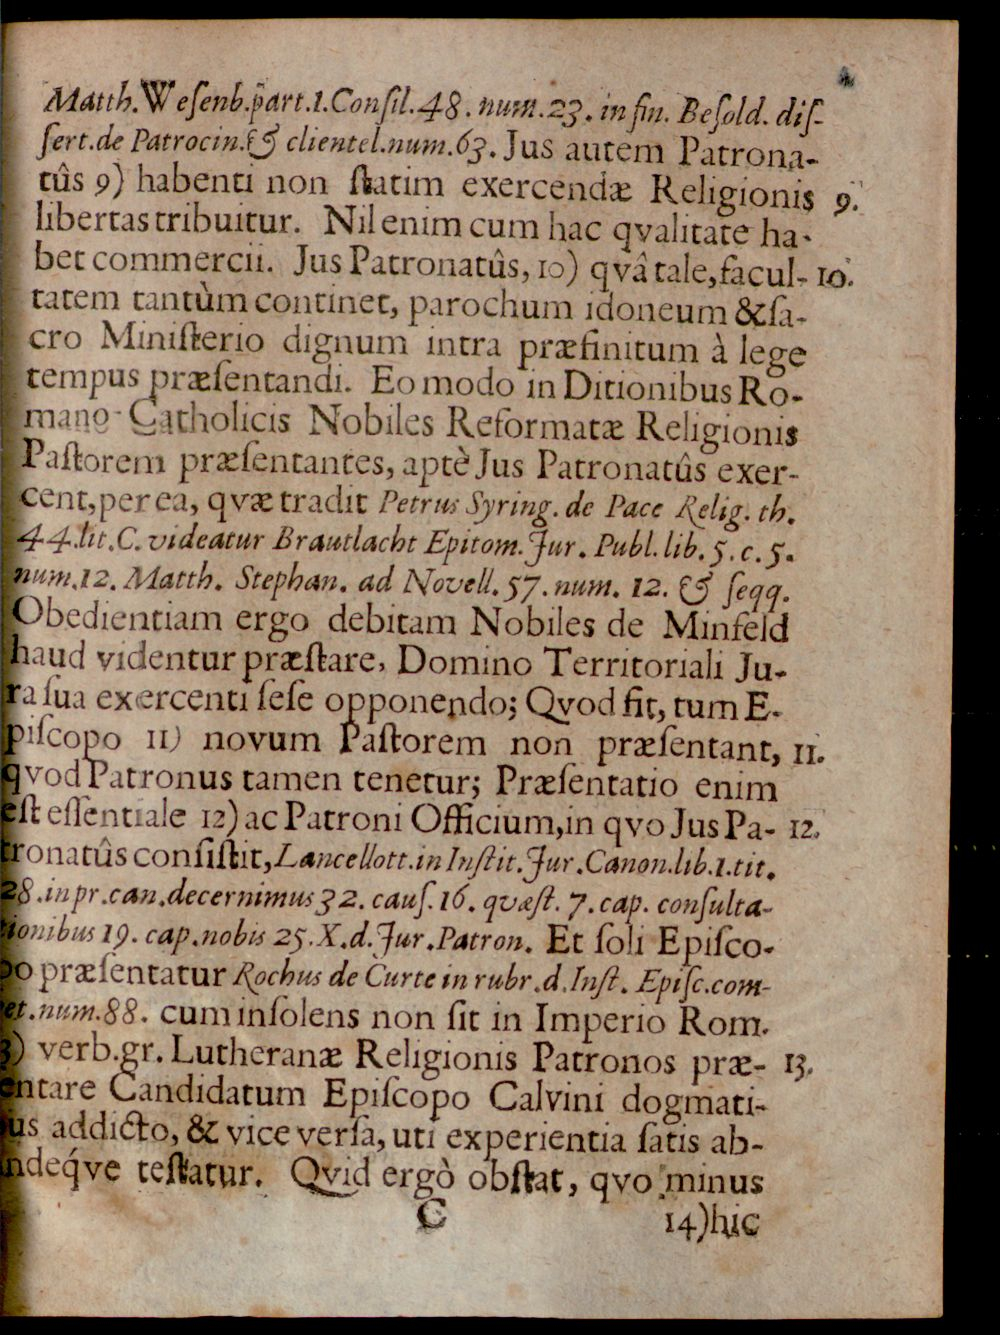 Matth. Weſenb. part. 1. Conſil. 48. num. 23. in fin. Beſold. diſ-
ſert. de Patrocin. & clientel. num. 63. Jus autem Patrona-
tûs 9) habenti non ſtatim exercendæ Religionis 9.
libertas tribuitur. Nil enim cum hac qvalitate ha-
bet commercii. Jus Patronatûs, 10) qvâ tale, facul- 10.
tatem tantùm continet, parochum idoneum & ſa-
cro Miniſterio dignum intra præfinitum à lege
tempus præſentandi. Eo modo in Ditionibus Ro-
mano-Catholicis Nobiles Reformatæ Religionis
Paſtorem præſentantes, aptè Jus Patronatûs exer-
cent, per ea, qvæ tradit Petrus Syring. de Pace Relig. th.
44. lit. C. videatur Brautlacht Epitom. Jur. Publ. lib. 5. c. 5.
num. 12. Matth. Stephan. ad Novell. 57. num. 12. & ſeqq.
Obedientiam ergo debitam Nobiles de Minfeld
haud videntur præſtare, Domino Territoriali Ju-
ra ſua exercenti ſeſe opponendo; Qvod fit, tum E-
piſcopo 11) novum Paſtorem non præſentant, 11.
qvod Patronus tamen tenetur; Præſentatio enim
eſt eſſentiale 12) ac Patroni Officium, in qvo Jus Pa- 12.
tronatûs conſiſtit, Lancellott. in Inſtit. Jur. Canon. lib. 1. tit.
28. in pr. can. decernimus 32. cauſ. 16. qvæſt. 7. cap. conſulta-
tionibus 19. cap. nobis 25. X. d. Jur. Patron. Et ſoli Epiſco-
po præſentatur Rochus de Curte in rubr. d. Inſt. Epiſc. com-
et. num. 88. cum inſolens non ſit in Imperio Rom.
3) verb. gr. Lutheranæ Religionis Patronos præ- 13.
entare Candidatum Epiſcopo Calvini dogmati-
us addicto, & vice verſa, uti experientia ſatis ab-
ndeq́ve teſtatur. Qvid ergò obſtat, qvo minus
C 14) hic